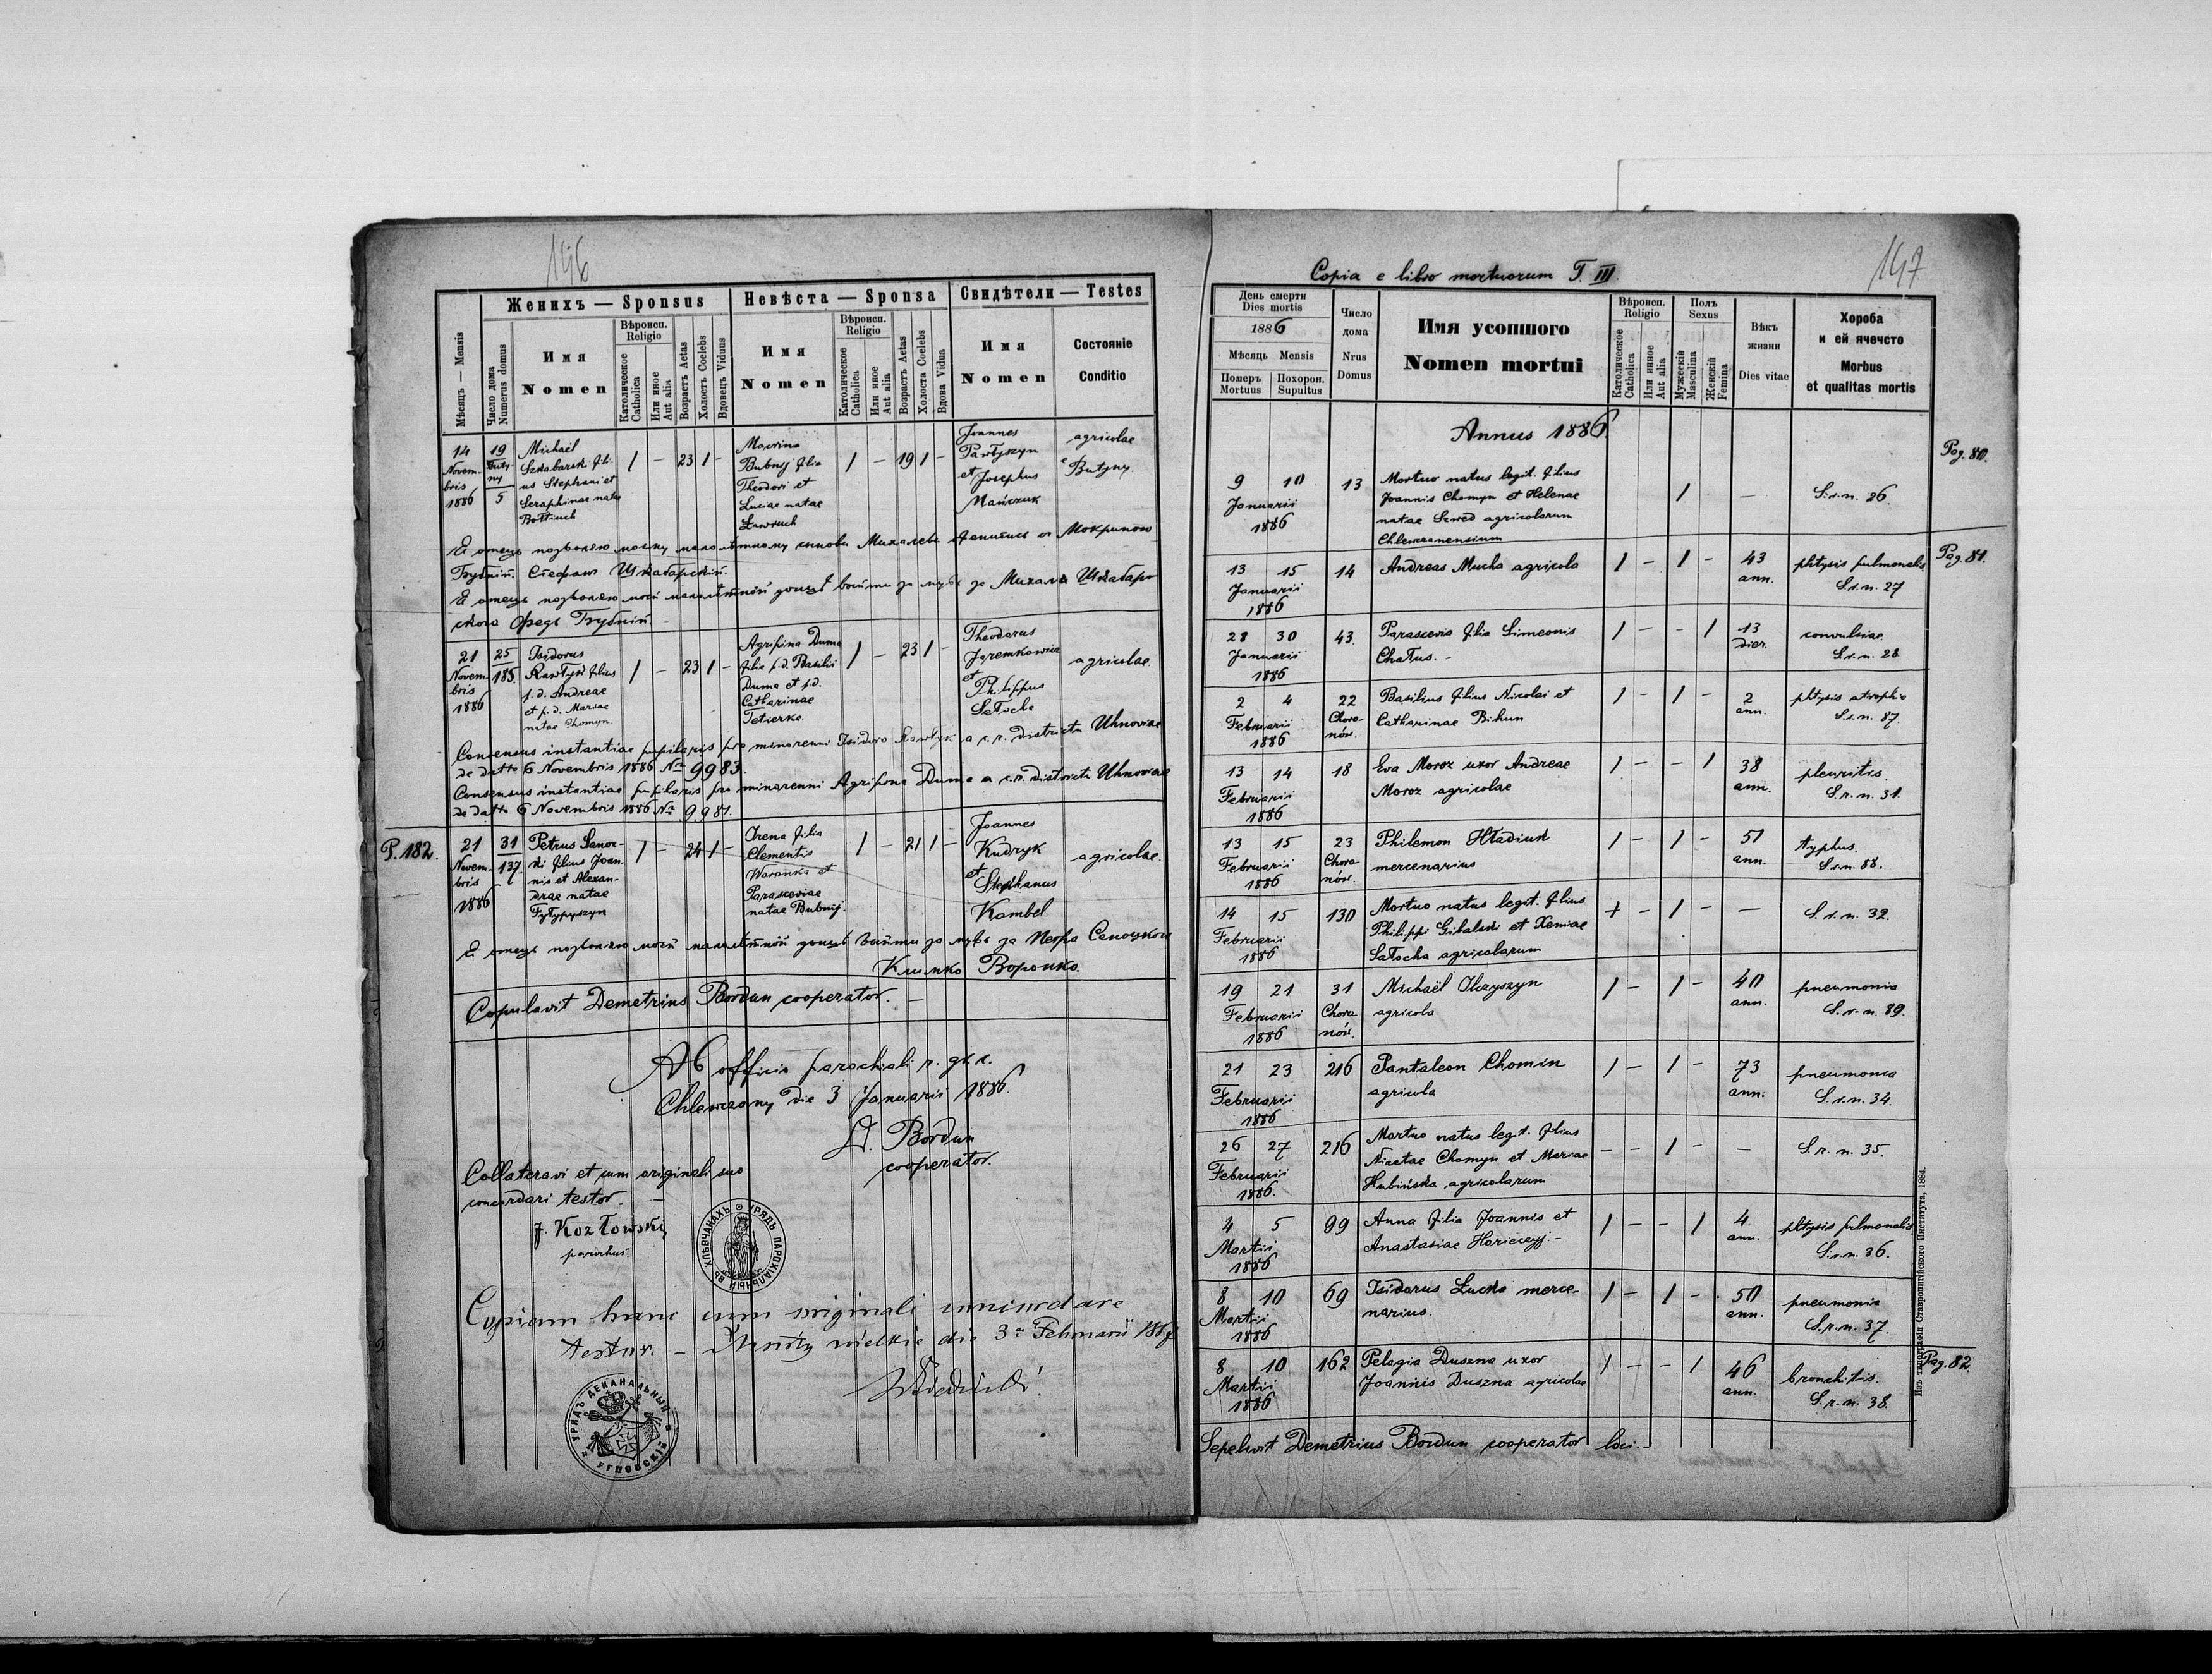 146
Женихъ — Sponsus
Невѣста — Sponsa
Свидѣтели — Testes
Мѣсяць — Mensis
Число дома
Numerus domus
Имя
Nomen
Вѣроисп.
Religio
Католическое
Catholica
Или иное
Aut alia
Возрастъ Aetas
Холостъ Coelebs
Вдовецъ Viduus
Имя
Nomen
Вѣроисп.
Religio
Католическое
Catholica
Или иное
Aut alia
Возрастъ Aetas
Холоста Coelebs
Вдова Vidua
Имя
Nomen
Состояніе
Conditio
14
Novem-
bris
1886
19
Buty-
ny
5
Michaël
Szkabarski fili-
us Stephani et
Seraphinae natae
/ — 23 / —
Macrina
Bubnij filia
Theodori et
Luciae natae
/ — 19 / —
Joannes
Pawłyszyn
et Josephus
Mańczuk
agricolae
e Butyny.
Я отець позволяю моему малолѣтному сынови Михалеви женитись съ Мокриною
Бубній. Стефанъ Шкабарскій.
Я отець позволяю моєй малолѣтной донцѣ выйти за мужъ за Михаила Шкабар-
ского Федь Бубній. —
21
Novem-
bris
1886
25
185.
Isidorus
Rawłyk filius
p. d. Andreae
et p. d. Mariae
natae Chomyn
/ — 23 / —
Agrifina Duma
filia p. d. Basilii
Duma et p. d.
Catharinae
/ — 23 / —
Theodorus
Jaremkowicz
et
Philippus
Sałocha
agricolae.
Consensus instantiae pupilaris pro minorenni Isidoro Rawłyk a c. r. districtu Uhnoviae
de datto 6 Novembris 1886 Nro 9983.
Consensus instantiae pupilaris pro minorenni Agrifina Duma a c. r. districtu Uhnoviae
de datto 6 Novembris 1886 Nro 9981.
P. 182.
21
Novem-
bris
1886
31
137.
Petrus Sanoc-
ki filius Joan-
nis et Alexan-
drae natae
/ — 24 / —
Irena filia
Clementis
Woronka et
Parasceviae
natae Bubnij.
/ — 21 / —
Joannes
Kudryk
et
Stephanus
Kombel
agricolae.
Я отець позволяю моєй малолѣтной донцѣ выйти за мужъ за Петра Саноцкого
Климко Воронко.
Copulavit Demetrius Bordun cooperator. —
Ab officio parochiali r. gr. c.
Chlewczany die 3 Januarii 1886.
D. Bordun
cooperator.
Collateravi et cum originali suo
concordari testor. —
J. Kozłowski
parochus
УРЯДЪ ПАРОХІАЛЬНЫЙ ВЪ ХЛѢВЧАНАХЪ
Copiam hanc cum originali concordare
testor. — wielkie die 3a Februarii 1887
УРЯДЪ ДЕКАНАЛЬНЫЙ УГНОВСКІЙ
147
Copia e libro mortuorum T. III.
День смерти
Dies mortis
1886
Мѣсяць Mensis
Померъ
Mortuus
Похорон.
Supultus
Число
дома
Nrus
Domus
Имя усопшого
Nomen mortui
Вѣроисп.
Religio
Католическое
Catholica
Или инное
Aut alia
Полъ
Sexus
Мужескій
Masculina
Женскій
Femina
Вѣкъ
жизни
Dies vitae
Хороба
и ей ячество
Morbus
et qualitas mortis
Annus 1886.
Pag. 80.
9 10
Januarii
1886
13
Mortuo natus legit. filius
Joannis Chomyn et Helenae
natae Szwed agricolarum
Chlewczanensium
/ —
S. r. n. 26.
13 15
Januarii
1886
14
Andreas Mucha agricola
/ — / —
43
ann.
phtysis pulmonalis
S. r. n. 27
Pag. 81.
28 30
Januarii
1886
43.
Parascevia filia Simeonis
Chałus. —
/ — — /
13
dier.
convulsiae.
S. r. n. 28.
2 4
Februarii
1886
22
Choro-
nów.
Basilius filius Nicolai et
Catharinae Bihun
/ — / —
2
ann.
phtysis atrophia
S. r. n. 87.
13 14
Februarii
1886
18
Eva Moroz uxor Andreae
Moroz agricolae
/ — — /
38
ann.
pleuritis.
S. r. n. 31.
13 15
Februarii
1886
23
Choro-
nów.
Philemon Hładiuk
mercenarius
/ — / —
51
ann.
typhus.
S. r. n. 88.
14 15
Februarii
1886
130
Mortuo natus legit. filius
Philippi Gibalski et Xeniae
Sałocha agricolarum
+ — / — —
S. r. n. 32.
19 21
Februarii
1886
31
Choro-
nów.
Michaël Olczyszyn
agricola
/ — / —
40
ann.
pneumonia
S. r. n. 89.
21 23
Februarii
1886
216
Pantaleon Chomin
agricola
/ — / —
73
ann.
pneumonia
S. r. n. 34.
26 27
Februarii
1886.
216
Mortuo natus legit. filius
Nicetae Chomyn et Mariae
Hubińska agricolarum
— — / — —
S. r. n. 35.
4 5
Martii
1886
99
Anna filia Joannis et
Anastasiae
/ — — /
4
ann.
phtysis pulmonalis
S. r. n. 36.
8 10
Martii
1886
69
Isidorus Łucka merce-
narius.
/ — / —
50
ann.
pneumonia
S. r. n. 37.
8 10
Martii
1886
162
Pelagia Duszna uxor
Joannis Duszna agricolae
/ — — /
46
ann.
bronchitis.
S. r. n. 38.
Pag. 82.
Sepelivit Demetrius Bordun cooperator loci. —
Изъ типографіи Ставропигійского Института, 1884.